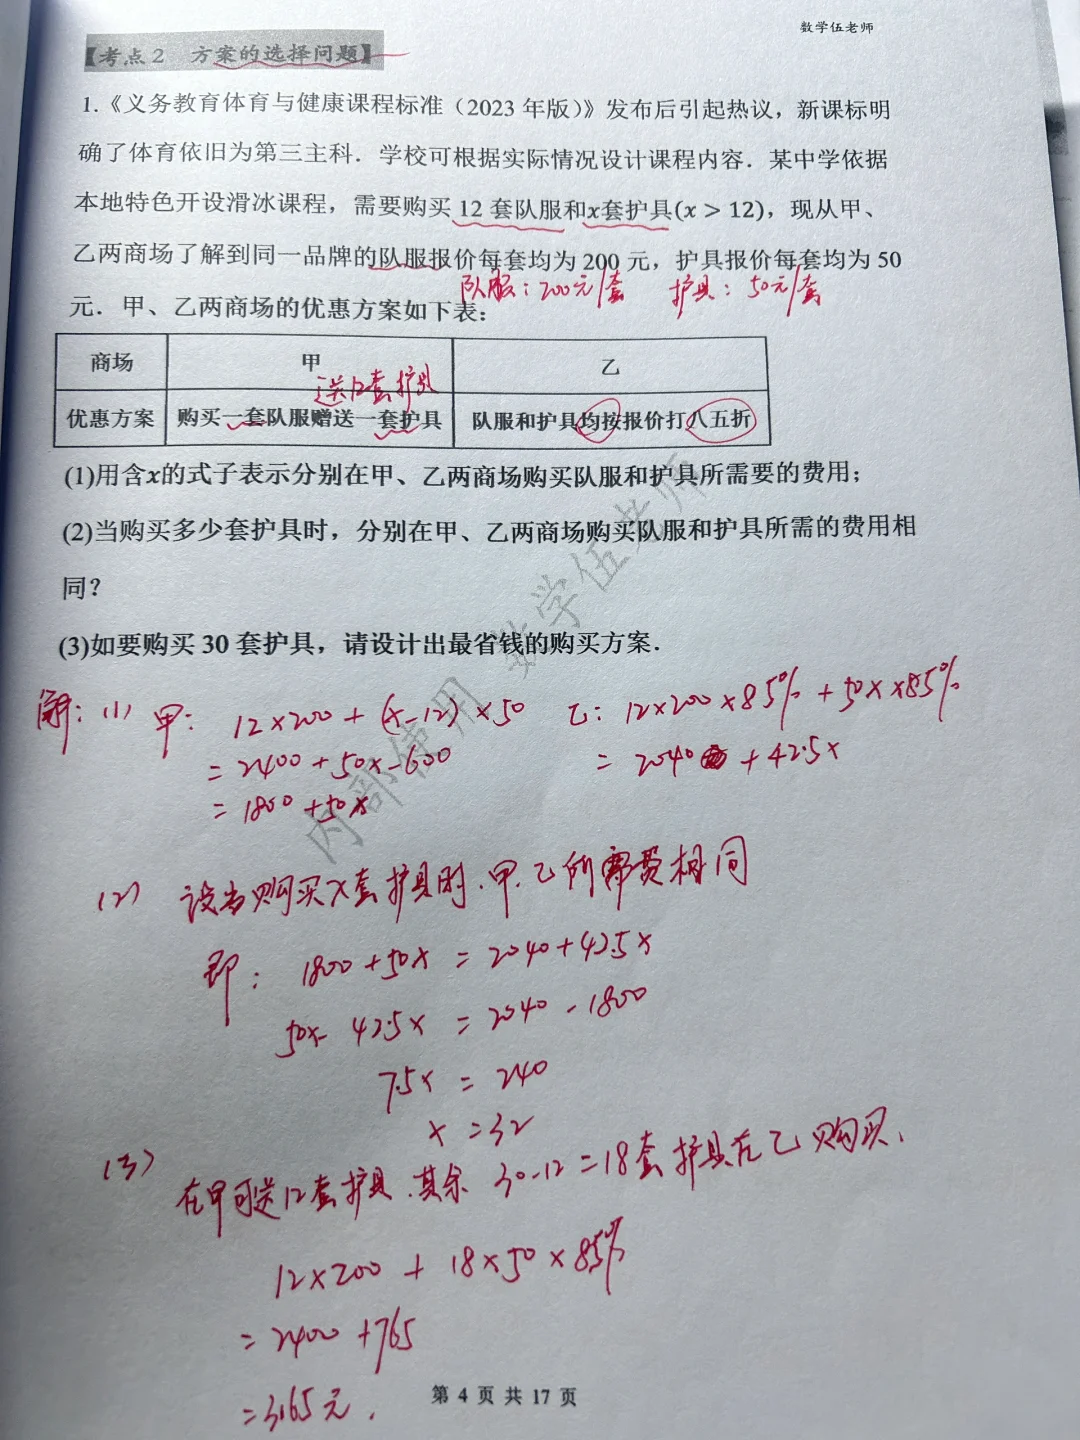 数学伍老师
【考点2 方案的选择问题】
1.《义务教育体育与健康课程标准（2023年版）》发布后引起热议，新课标明
确了体育依旧为第三主科．学校可根据实际情况设计课程内容．某中学依据
本地特色开设滑冰课程，需要购买12套队服和x套护具(x > 12)，现从甲、
乙两商场了解到同一品牌的队服报价每套均为200元，护具报价每套均为50
队服：200元/套 护具：50元/套
元．甲、乙两商场的优惠方案如下表：
商场 甲 乙
送12套护具
优惠方案 购买一套队服赠送一套护具 队服和护具均按报价打八五折
(1)用含x的式子表示分别在甲、乙两商场购买队服和护具所需要的费用；
(2)当购买多少套护具时，分别在甲、乙两商场购买队服和护具所需的费用相
同？
(3)如要购买30套护具，请设计出最省钱的购买方案．
内部使用 数学伍老师
解：(1) 甲：12×200+(x-12)×50 乙：12×200×85%+50x×85%
=2400+50x-600 =2040+42.5x
=1800+50x
(2) 设当购买x套护具时.甲.乙所需费相同
即：1800+50x=2040+42.5x
50x-42.5x=2040-1800
7.5x=240
x=32
(3) 在甲可送12套护具.其余30-12=18套护具在乙购买.
12×200+18×50×85%
=2400+765
=3165元.
第 4 页 共 17 页